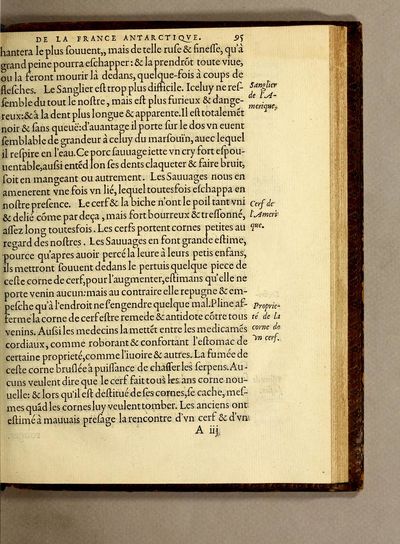 DE LA FRANCE ANTARCTIQVE. 95
hantera le plus ſouuent,, mais de telle ruſe & fineſſe, qu'à
grand peine pourra eſchapper : & la prendrõt toute viue,
ou la feront mourir là dedans, quelque-fois à coups de
fleſches. Le Sanglier eſt trop plus difficile. Iceluy ne reſ-
ſemble du tout le noſtre, mais eſt plus furieux & dange-
reux:& à la dent plus longue & apparente. Il eſt totalemẽt
noir & ſans queuë: d'auantage il porte ſur le dos vn euent
ſemblable de grandeur à celuy du marſouïn, auec lequel
il reſpire en l'eau. Ce porc ſauuage iette vn cry fort eſpou-
uentable, auſsi entẽd lon ſes dents claqueter & faire bruit,
ſoit en mangeant ou autrement. Les Sauuages nous en
amenerent vne fois vn lié, lequel toutesfois eſchappa en
noſtre preſence. Le cerf & la biche n'ont le poil tant vni
& delié cõme par deça, mais fort bourreux & treſſonné,
aſſez long toutesfois. Les cerfs portent cornes petites au
regard des noſtres. Les Sauuages en font grande eſtime,
pource qu'apres auoir percé la leure à leurs petis enfans,
ils mettront ſouuent dedans le pertuis quelque piece de
ceſte corne de cerf, pour l'augmenter, eſtimans qu'elle ne
porte venin aucun: mais au contraire elle repugne & em-
peſche qu'à l'endroit ne s'engendre quelque mal. Pline af-
ferme la corne de cerf eſtre remede & antidote cõtre tous
venins. Auſsi les medecins la mettẽt entre les medicamẽs
cordiaux, comme roborant & confortant l'eſtomac de
certaine proprieté, comme l'iuoire & autres. La fumée de
ceſte corne bruſlée à puiſſance de chaſſer les ſerpens. Au-
cuns veulent dire que le cerf fait tous les ans corne nou-
uelle: & lors qu'il eſt deſtitué de ſes cornes, ſe cache, meſ-
mes quãd les cornes luy veulent tomber. Les anciens ont
eſtimé à mauuais preſage la rencontre d'vn cerf & d'vn
A iij
Sanglier
de l'A-
merique.
Cerf de
l'Ameri
que.
Proprie-
té de la
corne de
vn cerf.